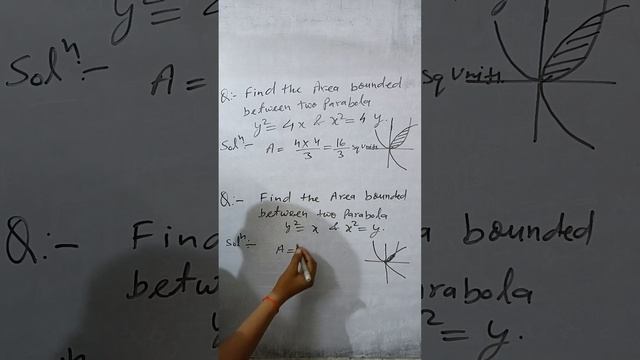 Q:- Find the Area bounded
between two Parabola
y² = 4x & x² = 4y.
Solⁿ:- A = 4×4/3 = 16/3 sq units
Q:- Find the Area bounded
between two Parabola
y² = x & x² = y.
Solⁿ:- A =